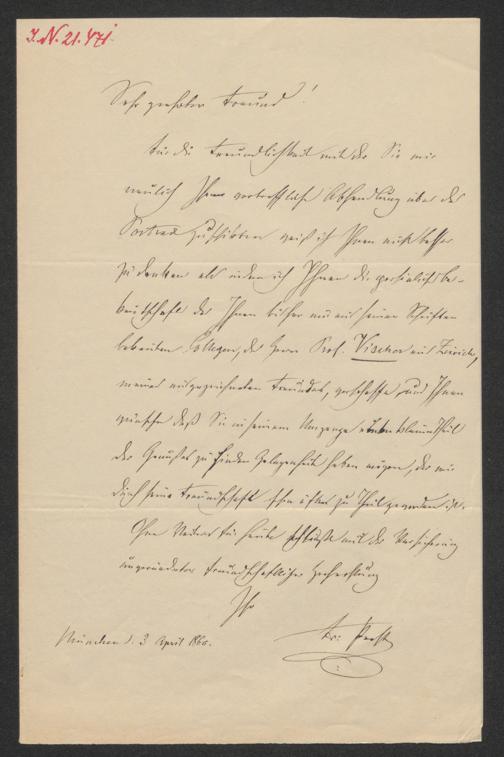 I.N. 21.471
Sehr geehrter Freund!
Für die Freundlichkeit mit der Sie mir
neulich Ihre vortreffliche Abhandlung über das
Portrait zuschickten weiß ich Ihnen nicht besser
zu danken als indem ich Ihnen die persönliche Be-
kanntschaft des Ihnen bisher nur aus seinen Schriften
bekannten Collegen, des Herrn Prof. Vischer aus Zürich,
meines ausgezeichneten Freundes, verschaffe und Ihnen
wünsche daß Sie in seinem Umgange einen kleinen Theil
des Genußes zu finden Gelegenheit haben mögen, der mir
durch seine Freundschaft schon öfter zu Theil geworden ist.
Ohne Weiteres für heute schließe mit der Versicherung
unveränderter freundschaftlicher Hochachtung
Ihr
München d. 3 April 1860.